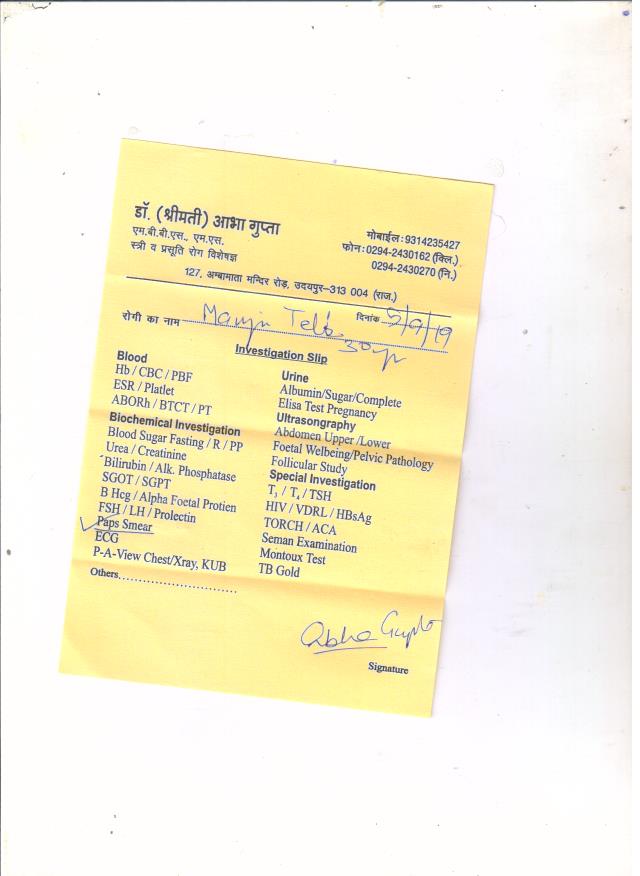 डॉ. (श्रीमती) आभा गुप्ता
एम.बी.बी.एस., एम.एस.
स्त्री व प्रसूति रोग विशेषज्ञ
मोबाईल:9314235427
फोन:0294-2430162 (क्लि.)
0294-2430270 (नि.)
127, अम्बामाता मन्दिर रोड़, उदयपुर–313 004 (राज.)
रोगी का नाम Manju दिनांक 5/9/19
30yr
Investigation Slip
Blood
Hb / CBC / PBF
ESR / Platlet
ABORh / BTCT / PT
Biochemical Investigation
Blood Sugar Fasting / R / PP
Urea / Creatinine
Bilirubin / Alk. Phosphatase
SGOT / SGPT
B Hcg / Alpha Foetal Protien
FSH / LH / Prolectin
Paps Smear
ECG
P-A-View Chest/Xray, KUB
Others............................
Urine
Albumin/Sugar/Complete
Elisa Test Pregnancy
Ultrasongraphy
Abdomen Upper /Lower
Foetal Welbeing/Pelvic Pathology
Follicular Study
Special Investigation
T₃ / T₄ / TSH
HIV / VDRL / HBsAg
TORCH / ACA
Seman Examination
Montoux Test
TB Gold
Abha Gupta
Signature